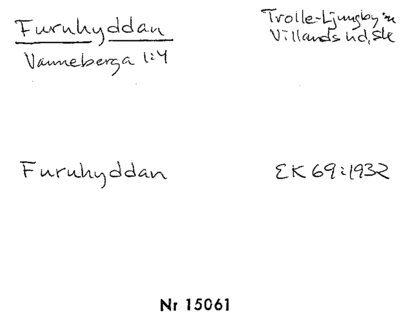 Furuhyddan
Vanneberga 1:4
Trolle-Ljungby sn
Villands hd, Sk
Furuhyddan
EK 69:1932
Nr 15061